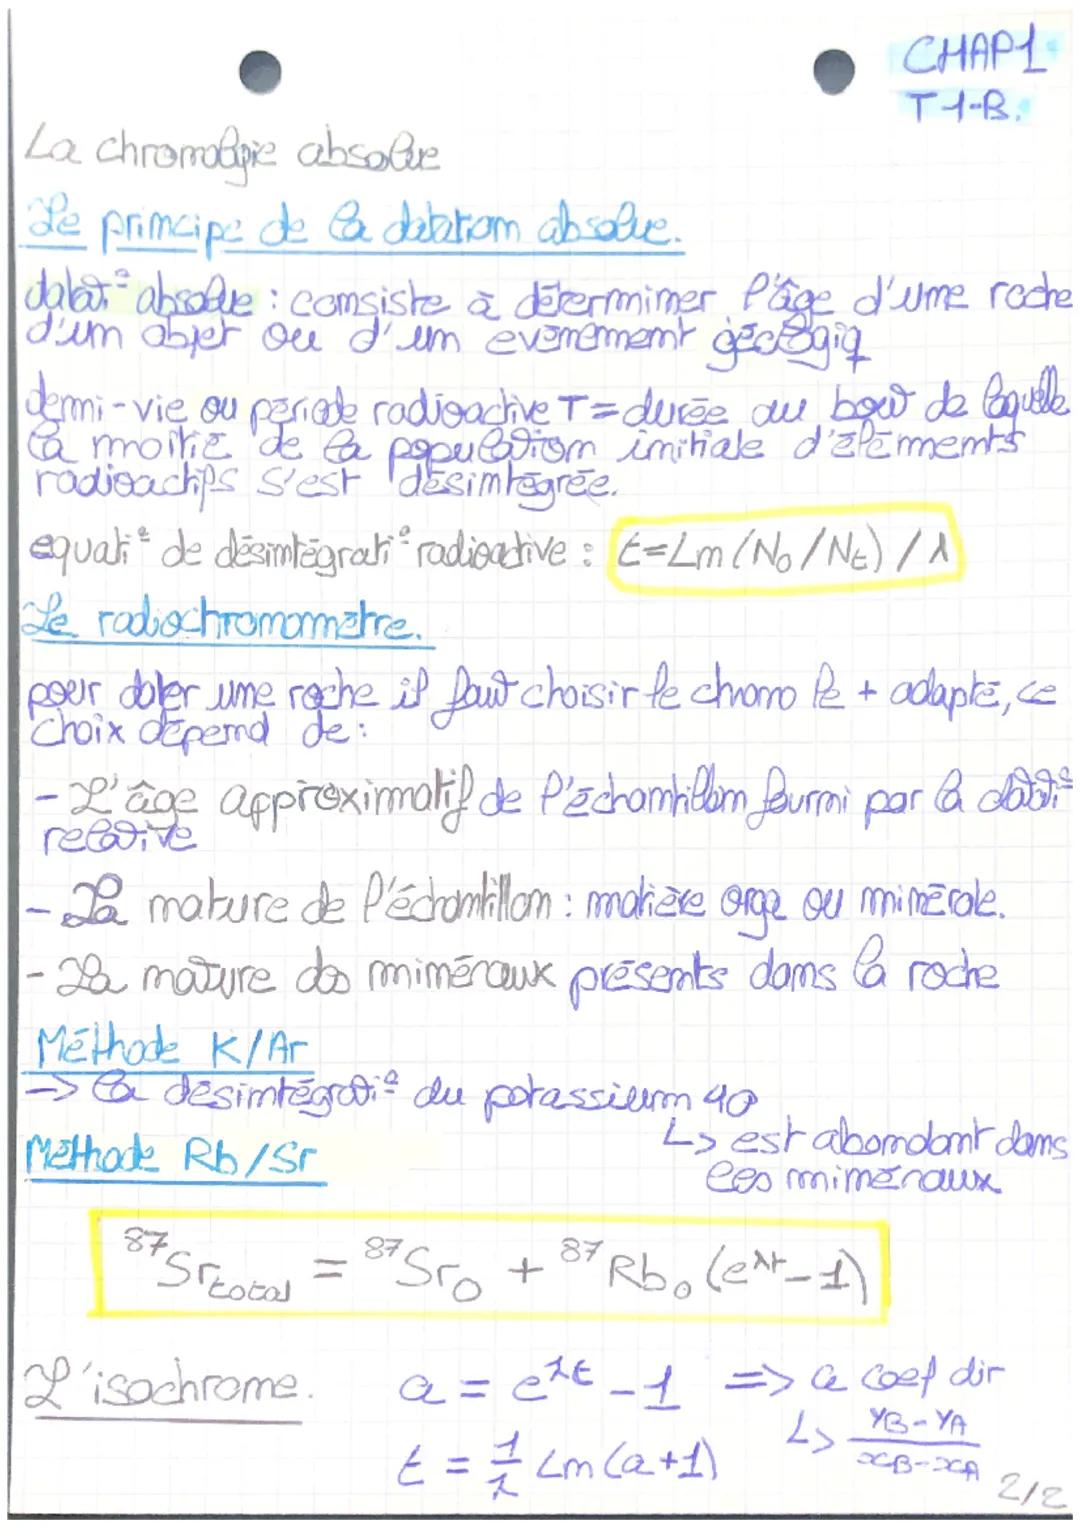 CHAP1
T1-B.
La chronologie absolue
Le principe de la datation absolue.
datat° absolue : consiste à déterminer l'âge d'une roche
d'un objet ou d'un evenement géologiq
demi-vie ou période radioactive T = durée au bout de laquelle
la moitié de la population initiale d'éléments
radioactifs s'est désintégrée.
equati° de désintégrati° radioactive : t=Ln(N₀/Nt)/λ
Le radiochronomètre.
pour dater une roche il faut choisir le chrono le + adapté, ce
choix dépend de :
- L'âge approximatif de l'échantillon fourni par la datati°
relative
- La nature de l'échantillon : matière orga ou minérale.
- La nature des minéraux présents dans la roche
Méthode K/Ar
-> la désintégrati° du potassium 40
↳ est abondant dans
les minéraux
Méthode Rb/Sr
⁸⁷Sr total = ⁸⁷Sr₀ + ⁸⁷Rb₀ (e^λt - 1)
L'isochrone. a = e^λt - 1 => a coef dir
↳ (yB - yA)/(xB - xA)
t = 1/λ Ln(a+1)
2/2